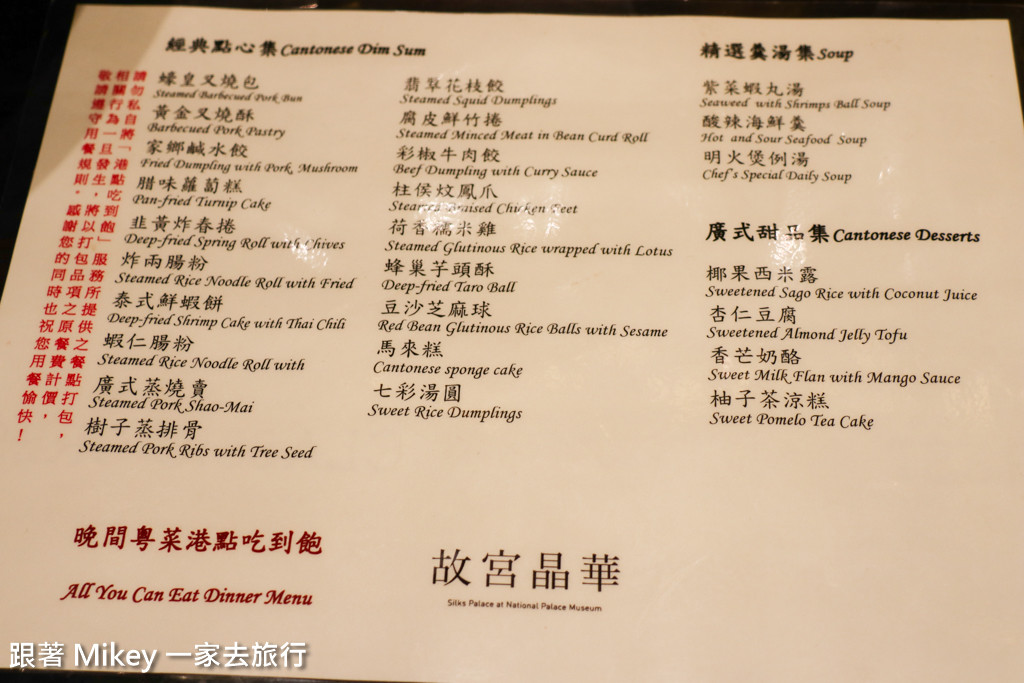 經典點心集 Cantonese Dim Sum
蠔皇叉燒包
Steamed Barbecued Pork Bun
黃金叉燒酥
Barbecued Pork Pastry
家鄉鹹水餃
Fried Dumpling with Pork, Mushroom
腊味蘿蔔糕
Pan-fried Turnip Cake
韭黃炸春捲
Deep-fried Spring Roll with Chives
炸兩腸粉
Steamed Rice Noodle Roll with Fried
泰式鮮蝦餅
Deep-fried Shrimp Cake with Thai Chili
蝦仁腸粉
Steamed Rice Noodle Roll with
廣式蒸燒賣
Steamed Pork Shao-Mai
樹子蒸排骨
Steamed Pork Ribs with Tree Seed
翡翠花枝餃
Steamed Squid Dumplings
腐皮鮮竹捲
Steamed Minced Meat in Bean Curd Roll
彩椒牛肉餃
Beef Dumpling with Curry Sauce
柱侯炆鳳爪
Steamed Braised Chicken Feet
荷香糯米雞
Steamed Glutinous Rice wrapped with Lotus
蜂巢芋頭酥
Deep-fried Taro Ball
豆沙芝麻球
Red Bean Glutinous Rice Balls with Sesame
馬來糕
Cantonese sponge cake
七彩湯圓
Sweet Rice Dumplings
精選羹湯集 Soup
紫菜蝦丸湯
Seaweed with Shrimps Ball Soup
酸辣海鮮羹
Hot and Sour Seafood Soup
明火煲例湯
Chef's Special Daily Soup
廣式甜品集 Cantonese Desserts
椰果西米露
Sweetened Sago Rice with Coconut Juice
杏仁豆腐
Sweetened Almond Jelly Tofu
香芒奶酪
Sweet Milk Flan with Mango Sauce
柚子茶涼糕
Sweet Pomelo Tea Cake
請勿私自將「港點吃到飽」服務所提供之餐點打包，
相關行為一旦發生，將以打包品項之原餐費計價，
敬請遵守用餐規則。感謝您的同時也祝您用餐愉快！
晚間粵菜港點吃到飽
All You Can Eat Dinner Menu
故宮晶華
Silks Palace at National Palace Museum
跟著 Mikey 一家去旅行